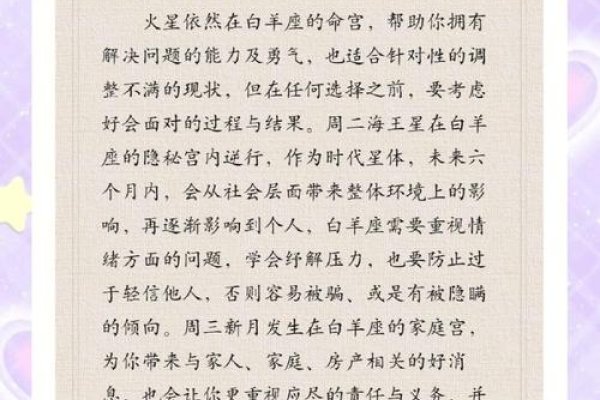 火星依然在白羊座的命宫，帮助你拥有
解决问题的能力及勇气，也适合针对性的调
整不满的现状，但在任何选择之前，要考虑
好会面对的过程与结果。周二海王星在白羊
座的隐秘宫内逆行，作为时代星体，未来六
个月内，会从社会层面带来整体环境上的影
响，再逐渐影响到个人，白羊座需要重视情
绪方面的问题，学会纾解压力，也要防止过
于轻信他人，否则容易被骗、或是有被隐瞒
的倾向。周三新月发生在白羊座的家庭宫，
为你带来与家人、家庭、房产相关的好消
息，也会让你更重视应尽的责任与义务，并